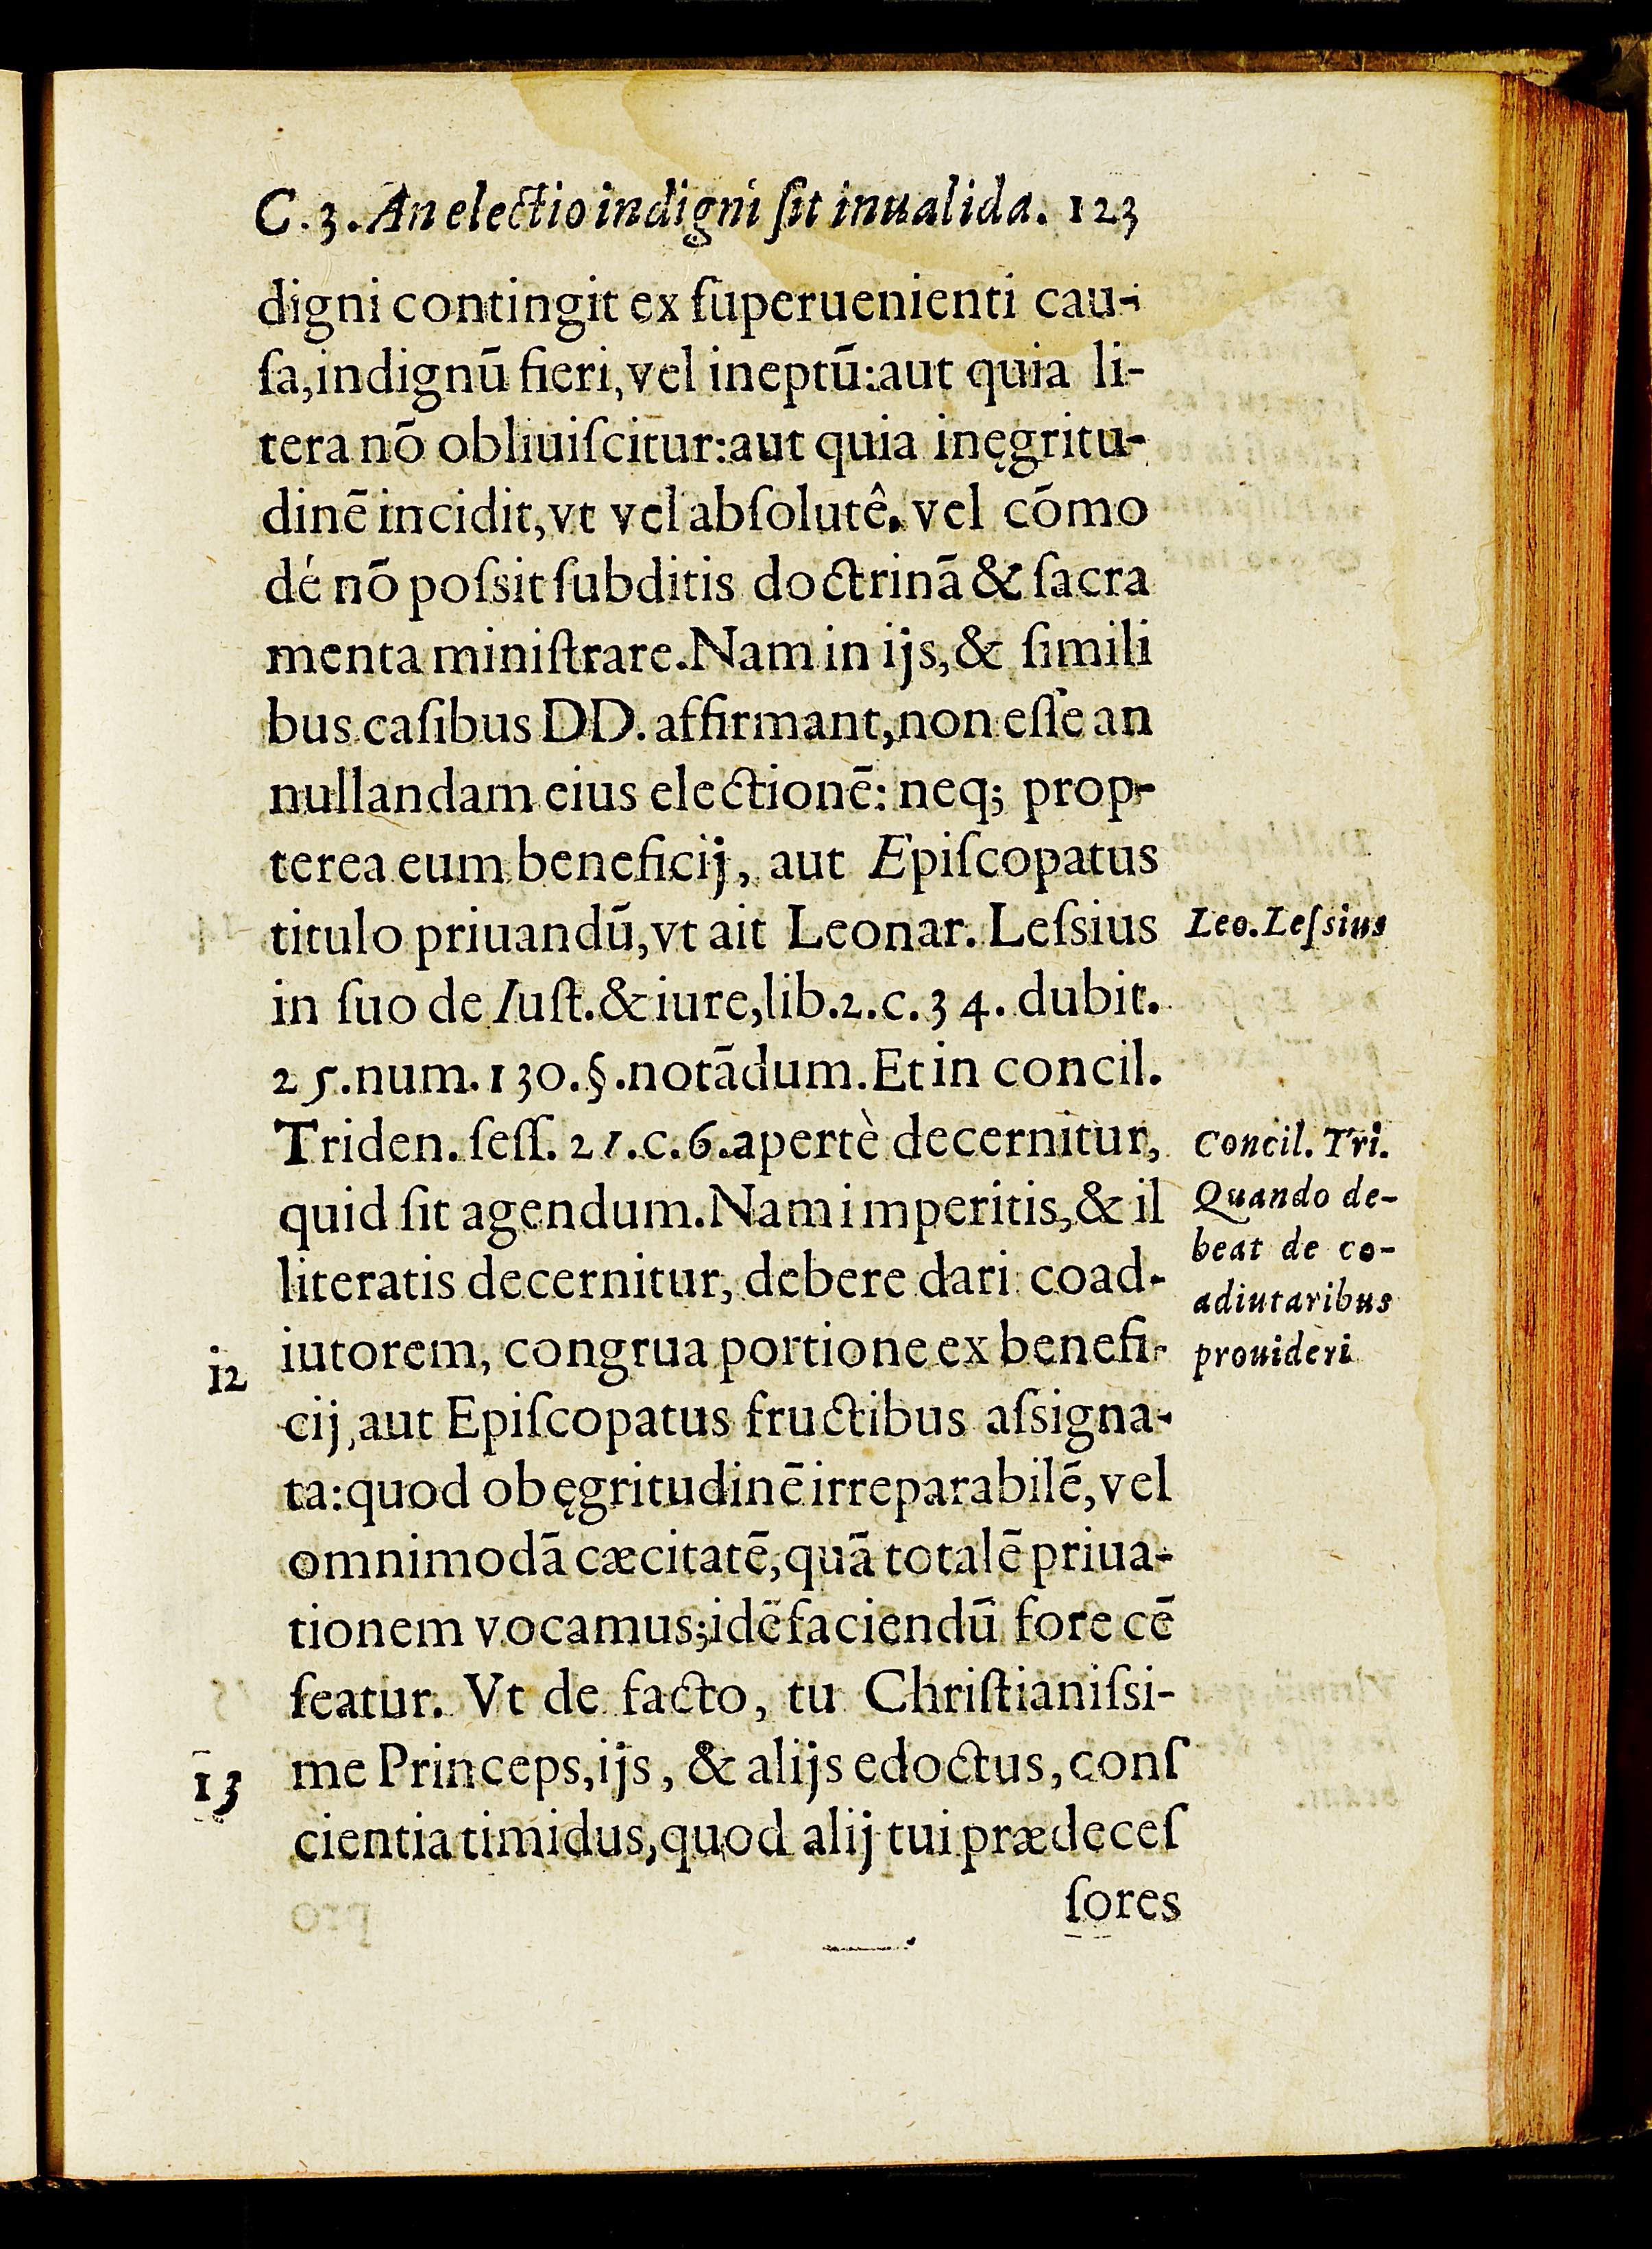 C.3. An electio indigni ſit inualida. 123
digni contingit ex ſuperuenienti cau-
ſa, indignū fieri, vel ineptū: aut quia li-
tera nō obliuiſcitur: aut quia inęgritu-
dinē incidit, vt vel abſolutê, vel cōmo
dé nō poſsit ſubditis doctrinā & ſacra
menta miniſtrare. Nam in ijs, & ſimili
bus caſibus DD. affirmant, non eſſe an
nullandam eius electionē: neq; prop-
terea eum beneficij, aut Epiſcopatus
titulo priuandū, vt ait Leonar. Leſsius
Leo. Leſsius
in ſuo de Iuſt. & iure, lib. 2. c. 34. dubit.
25. num. 130. §. notādum. Et in concil.
Triden. ſeſſ. 21. c. 6. apertè decernitur,
Concil. Tri.
quid ſit agendum. Nam imperitis, & il
Quando de-
beat de co-
literatis decernitur, debere dari coad-
adiutaribus
12
iutorem, congrua portione ex benefi-
prouideri
cij, aut Epiſcopatus fructibus aſsigna-
ta: quod ob ęgritudinē irreparabilē, vel
omnimodā cæcitatē, quā totalē priua-
tionem vocamus; idē faciendū fore cē
ſeatur. Vt de facto, tu Chriſtianiſsi-
13
me Princeps, ijs, & alijs edoctus, conſ
cientia timidus, quod alij tui prædeceſ
ſores